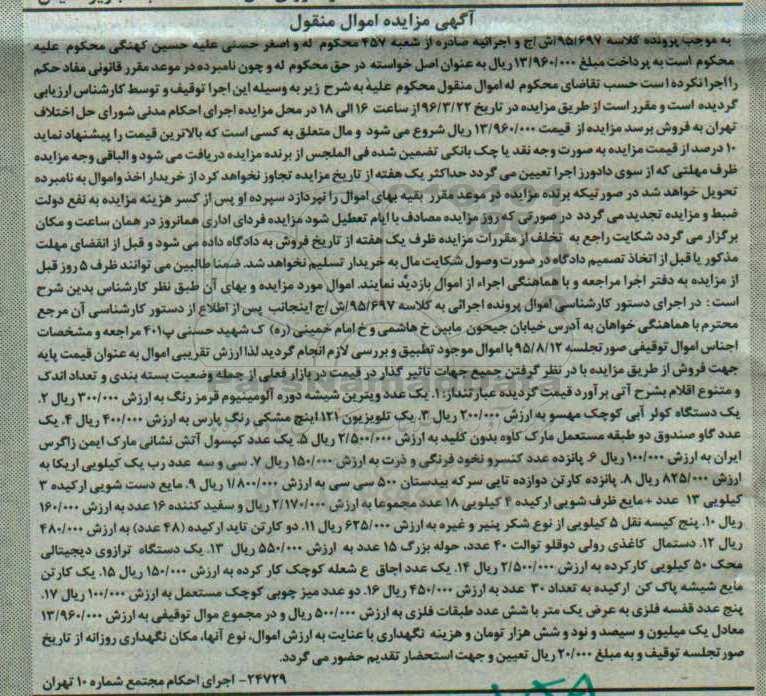 آگهی مزایده اموال منقول
به موجب پرونده کلاسه ۹۵/۶۹۷/ش/ج و اجرائیه صادره از شعبه ۴۵۷ محکوم له و اصغر حسنی علیه حسین کهنگی محکوم علیه
محکوم است به پرداخت مبلغ ۱۳/۹۶۰/۰۰۰ ریال به عنوان اصل خواسته در حق محکوم له و چون نامبرده در موعد مقرر قانونی مفاد حکم
را اجرا نکرده است حسب تقاضای محکوم له اموال منقول محکوم علیه به شرح زیر به وسیله این اجرا توقیف و توسط کارشناس ارزیابی
گردیده است و مقرر است از طریق مزایده در تاریخ ۹۶/۳/۲۲ از ساعت ۱۶ الی ۱۸ در محل مزایده اجرای احکام مدنی شورای حل اختلاف
تهران به فروش برسد مزایده از قیمت ۱۳/۹۶۰/۰۰۰ ریال شروع می شود و مال متعلق به کسی است که بالاترین قیمت را پیشنهاد نماید
۱۰ درصد از قیمت مزایده به صورت وجه نقد یا چک بانکی تضمین شده فی المجلس از برنده مزایده دریافت می شود و الباقی وجه مزایده
ظرف مهلتی که از سوی دادورز اجرا تعیین می گردد حداکثر یک هفته از تاریخ مزایده تجاوز نخواهد کرد از خریدار اخذ و اموال به نامبرده
تحویل خواهد شد در صورتیکه برنده مزایده در موعد مقرر بقیه بهای اموال را نپردازد سپرده او پس از کسر هزینه مزایده به نفع دولت
ضبط و مزایده تجدید می گردد در صورتی که روز مزایده مصادف با ایام تعطیل شود مزایده فردای اداری همانروز در همان ساعت و مکان
برگزار می گردد شکایت راجع به تخلف از مقررات مزایده ظرف یک هفته از تاریخ فروش به دادگاه داده می شود و قبل از انقضای مهلت
مذکور یا قبل از اتخاذ تصمیم دادگاه در صورت وصول شکایت مال به خریدار تسلیم نخواهد شد. ضمنا طالبین می توانند ظرف ۵ روز قبل
از مزایده به دفتر اجرا مراجعه و با هماهنگی اجراء از اموال بازدید نمایند. اموال مورد مزایده و بهای آن طبق نظر کارشناس بدین شرح
است: در اجرای دستور کارشناسی اموال پرونده اجرائی به کلاسه ۹۵/۶۹۷/ش/ج اینجانب پس از اطلاع از دستور کارشناسی آن مرجع
محترم با هماهنگی خواهان به آدرس خیابان جیحون مابین خ هاشمی و خ امام خمینی (ره) ک شهید حسنی پ۴۰۱ مراجعه و مشخصات
اجناس اموال توقیفی صورتجلسه ۹۵/۸/۱۲ با اموال موجود تطبیق و بررسی لازم انجام گردید لذا ارزش تقریبی اموال به عنوان قیمت پایه
جهت فروش از طریق مزایده با در نظر گرفتن جمیع جهات تاثیر گذار در قیمت در بازار فعلی از جمله وضعیت بسته بندی و تعداد اندک
و متنوع اقلام بشرح آتی برآورد قیمت گردیده عبارتنداز: ۱. یک عدد ویترین شیشه دوره آلومینیوم قرمز رنگ به ارزش ۳۰۰/۰۰۰ ریال ۲.
یک دستگاه کولر آبی کوچک مهسو به ارزش ۲۰۰/۰۰۰ ریال ۳. یک تلویزیون ۱۲۱ اینچ مشکی رنگ پارس به ارزش ۴۰۰/۰۰۰ ریال ۴. یک
عدد گاو صندوق دو طبقه مستعمل مارک کاوه بدون کلید به ارزش ۲/۵۰۰/۰۰۰ ریال ۵. یک عدد کپسول آتش نشانی مارک ایمن زاگرس
ایران به ارزش ۱۰۰/۰۰۰ ریال ۶. پانزده عدد کنسرو نخود فرنگی و ذرت به ارزش ۱۵۰/۰۰۰ ریال ۷. سی و سه عدد رب یک کیلویی اریکا به
ارزش ۸۲۵/۰۰۰ ریال ۸. پانزده کارتن دوازده تایی سرکه بیدستان ۵۰۰ سی سی به ارزش ۱/۸۰۰/۰۰۰ ریال ۹. مایع دست شویی ارکیده ۳
کیلویی ۱۳ عدد + مایع ظرف شویی ارکیده ۴ کیلویی ۱۸ عدد مجموعا به ارزش ۲/۱۷۰/۰۰۰ ریال و سفید کننده ۱۶ عدد به ارزش ۱۶۰/۰۰۰
ریال ۱۰. پنج کیسه نقل ۵ کیلویی از نوع شکر پنیر و غیره به ارزش ۶۲۵/۰۰۰ ریال ۱۱. دو کارتن تاید ارکیده (۴۸ عدد) به ارزش ۴۸۰/۰۰۰
ریال ۱۲. دستمال کاغذی رولی دوقلو توالت ۴۰ عدد، حوله بزرگ ۱۵ عدد به ارزش ۵۵۰/۰۰۰ ریال ۱۳. یک دستگاه ترازوی دیجیتالی
محک ۵۰ کیلویی کارکرده به ارزش ۲/۵۰۰/۰۰۰ ریال ۱۴. یک عدد اجاق ع شعله کوچک کار کرده به ارزش ۱۵۰/۰۰۰ ریال ۱۵. یک کارتن
مایع شیشه پاک کن ارکیده به تعداد ۳۰ عدد به ارزش ۴۵۰/۰۰۰ ریال ۱۶. دو عدد میز چوبی کوچک مستعمل به ارزش ۱۰۰/۰۰۰ ریال ۱۷.
پنج عدد قفسه فلزی به عرض یک متر با شش عدد طبقات فلزی به ارزش ۵۰۰/۰۰۰ ریال و در مجموع موال توقیفی به ارزش ۱۳/۹۶۰/۰۰۰
معادل یک میلیون و سیصد و نود و شش هزار تومان و هزینه نگهداری با عنایت به ارزش اموال، نوع آنها، مکان نگهداری روزانه از تاریخ
صورتجلسه توقیف و به مبلغ ۲۰/۰۰۰ ریال تعیین و جهت استحضار تقدیم حضور می گردد.
۲۴۷۲۹- اجرای احکام مجتمع شماره ۱۰ تهران